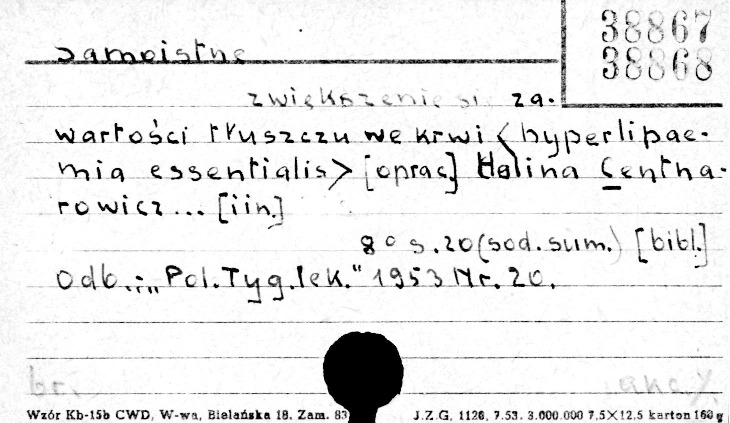 38867
38868
Samoistne
zwiększenie się za-
wartości tłuszczu we krwi <hyperlipae-
mia essentialis> [oprac.] Halina Centna-
rowicz... [i in.]
8° s. 20 (sod. sum.) [bibl.]
Odb.: „Pol. Tyg. lek." 1953 Nr. 20.
br. akc
Wzór Kb-15b CWD, W-wa, Bielańska 18. Zam. 83 J.Z.G. 1126, 7.53. 3.000.000 7,5×12,5 karton 160 g